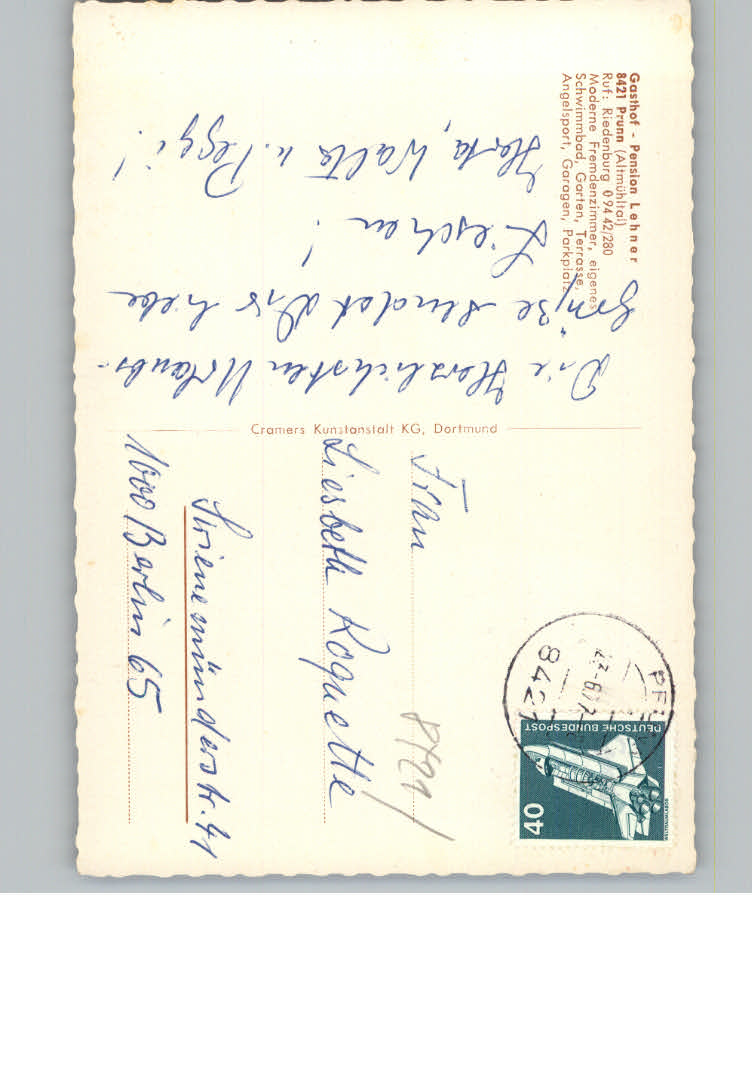 Gasthof - Pension Lehner
8421 Prunn (Altmühltal)
Ruf: Riedenburg 0 94 42/280
Moderne Fremdenzimmer, eigenes
Schwimmbad, Garten, Terrasse,
Angelsport, Garagen, Parkplatz
Die Herzlichsten Urlaubs-
Grüße sendet Dir liebe
Lieschen!
Herta, Walter u. Peggi!
Cramers Kunstanstalt KG, Dortmund
Frau
Liesbeth Roquette
Swienemünderstr. 41
1000 Berlin 65
8421
DEUTSCHE BUNDESPOST
40